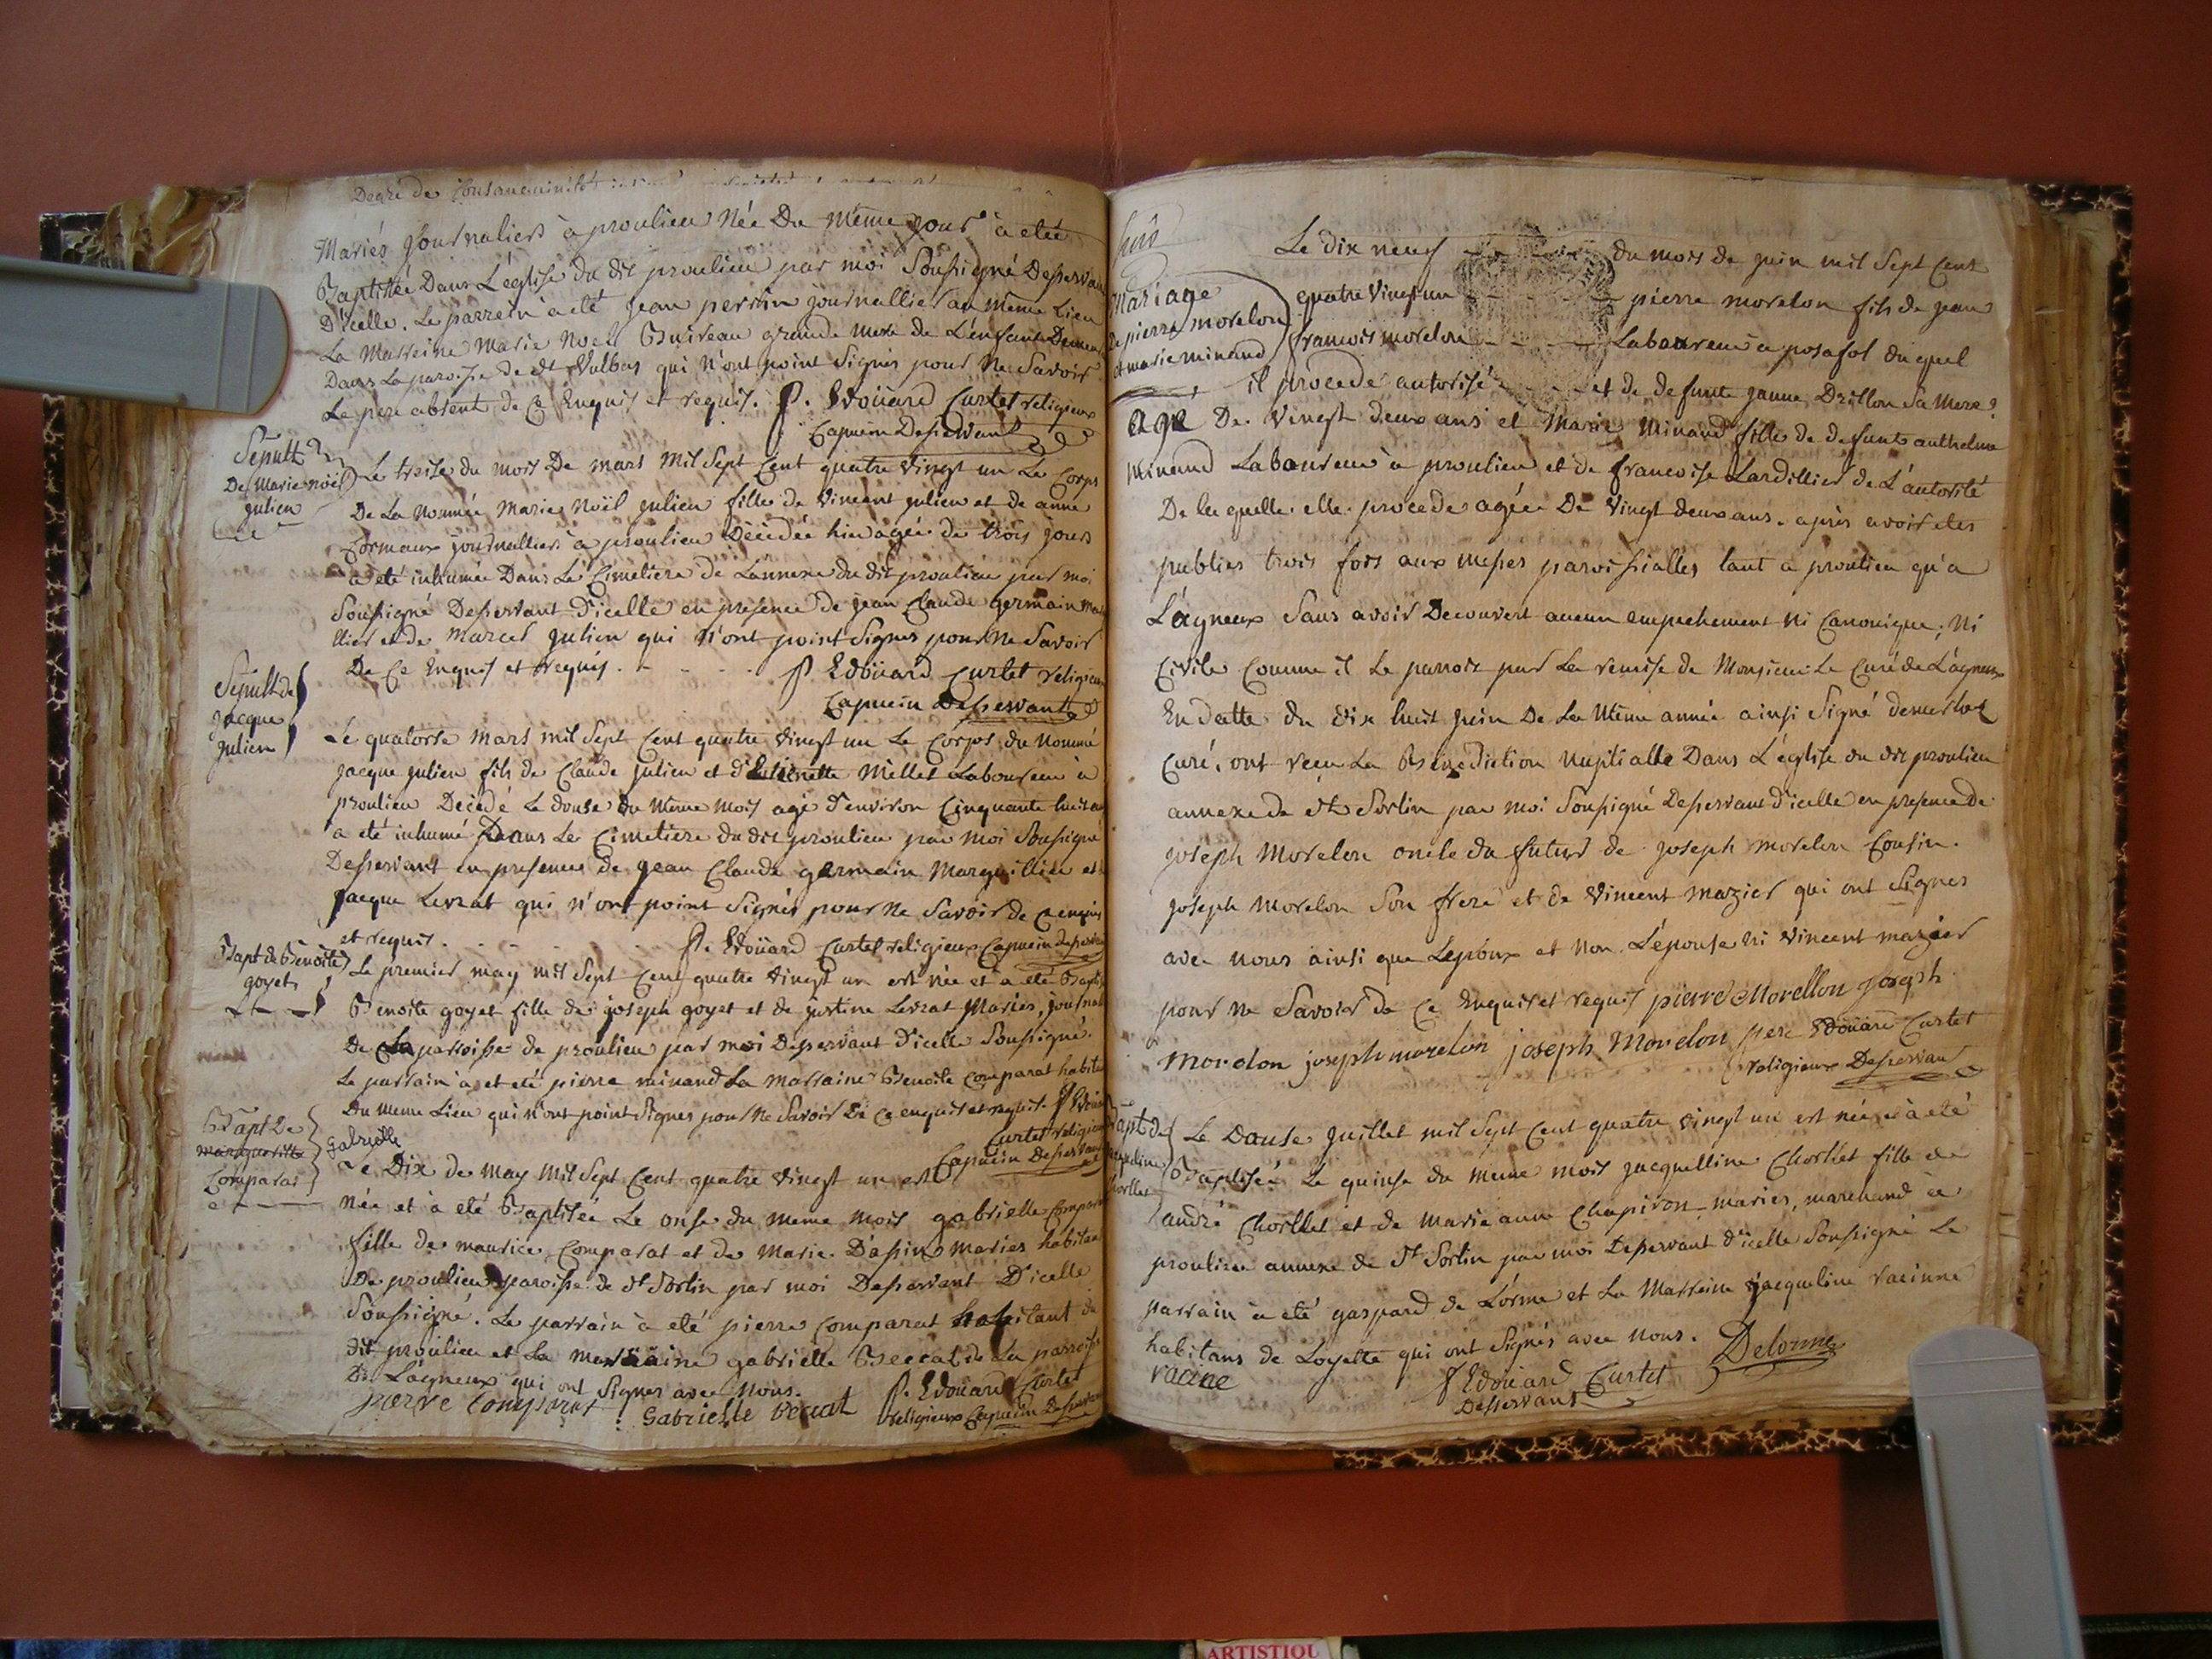 Degré de Consanguinité
Mariés journaliers à proulieu Née Du même jour à eté
Baptisée Dans L'église du dit proulieu par moi Soussigné Desservant
D'icelle. Le parrein à eté jean perrin journallier au même Lieu
La Marreine Marie Noel Buireau grande Mere de L'enfant
Dans La paroisse de st Vulbas qui n'ont point Signés pour Ne Savoir
Le pere absent de Ce Enquis et requis. P. Edoüard Curtet religieux
Capucin Desservant
Sepult
De Marie noël
julien
Le treise du mois De mars Mil Sept Cent quatre Vingt un Le Corps
De La Nomée Marie Noël julien fille de Vincent julien et de anne
Cormaux journalliers à proulieu Décédée hier agée de trois jours
à eté inhumée Dans Le Cimetiere de Lannexe du dit proulieu par moi
Soussigné Desservant D'icelle en presence de jean Claude germain
llier et de Marcel julien qui N'ont point Signes pour Ne Savoir
De Ce Enquis et Requis. - - - - P. Edoüard Curtet religieux
Capucin Desservant
Sepult de
jacque
julien
Le quatorse Mars mil Sept Cent quatre Vingt un Le Corps du Nommé
jacque julien fils de Claude julien et d' Millet Laboureur à
proulieu Décédé Le douse du Même Mois agé d'environ Cinquante huit an
a été inhumé Dans Le Cimetiere du dit proulieu par Moi Soussigné
Desservant en presence de jean Claude germain Marguillier et
jacque Levrat qui n'ont point Signés pour Ne Savoir de Ce enquis
et requis. - - - P. Edoüard Curtet religieux Capucin desservant
Bapt de Benoite
goyet
Le premier may mil Sept Cent quatre Vingt un est née et à eté Baptis
Benoite goyet fille de joseph goyet et de justine Levrat Mariés, journal
De La parroisse de proulieu par moi Desservant D'icelle Soussigné.
Le parrain à eté pierre minand La Marraine Benoite Comparat habita
Du Meme Lieu qui n'ont point Signes pour Ne Savoir De Ce enquis et requis. P Edoüar
Curtet religieux
Capucin Desservant
Bapt De
margueritte
Comparat
Gabrielle
Le Dix de May Mil Sept Cent quatre Vingt un est
Née et à eté Baptisée Le onse du Meme Mois gabrielle Compara
fille de maurice Comparat et de Marie D'apin mariés habitan
De proulieu paroisse de st Sorlin par moi Desservant D'icelle
Soussigné. Le parrain à eté pierre Comparat habitant du
dit proulieu et La Marraine gabrielle Beccat de La parroisse
De Lagneux qui ont Signes avec Nous. P. Edoüard Curtet
pierre Comparat Gabrielle religieux Capucin Desservant
huit
Mariage
de pierre morelon
et marie minand
Le dix neuf du mois de juin mil Sept Cent
quatre Vingt un pierre morelon fils de jean
francois morelon Laboureur a posafol du quel
il procede autorisé et de defunte janne Drillon Sa Mere
agé De Vingt deux ans et Marie Minand fille de defunt anthelme
Minand Laboureur à proulieu et de francoise Lardillier de L'autorité
De la quelle elle procede agée De Vingt deux ans. après avoir etés
publies trois fois aux messes paroissialles tant a proulieu qu'a
Lagneux Sans avoir Decouvert aucun empechement Ni Canonique, Ni
Civile Comme il Le paroit par La remise de Monsieur Le Curé de Lagneux
En datte du dix huit juin De La Même année ainsi Signé
Curé, ont recu La Benediction Nuptialle Dans L'église du dit proulieu
annexe de st Sorlin par moi Soussigné Desservant d'icelle en presence de
joseph Morelon oncle du futur de joseph morelon Cousin.
joseph Morelon Son frere et de Vincent mazier qui ont Signes
avec nous ainsi que Lepoux et Non L'épouse ni Vincent mazier
pour Ne Savoir de Ce Enquis et requis pierre Morellon joseph
Morelon joseph morelon joseph Morelon pere Edoüard Curtet
religieux Desservant
Bapt de
jaqueline
Chorllet
Le Douse juillet mil Sept Cent quatre Vingt un est née et à eté
Baptisée Le quinse du meme mois jacquelline Chorllet fille de
andré Chorllet et de Marie anne Chapiron mariés, marchand à
proulieu annexe de St Sorlin par moi Desservant d'icelle Soussigné Le
parrain à eté gaspard de Lorme et La Marraine jacqueline racinne
habitans de Loyette qui ont Signés avec Nous. Delorme
racine P Edoüard Curtet
Desservant
ARTISTIQU